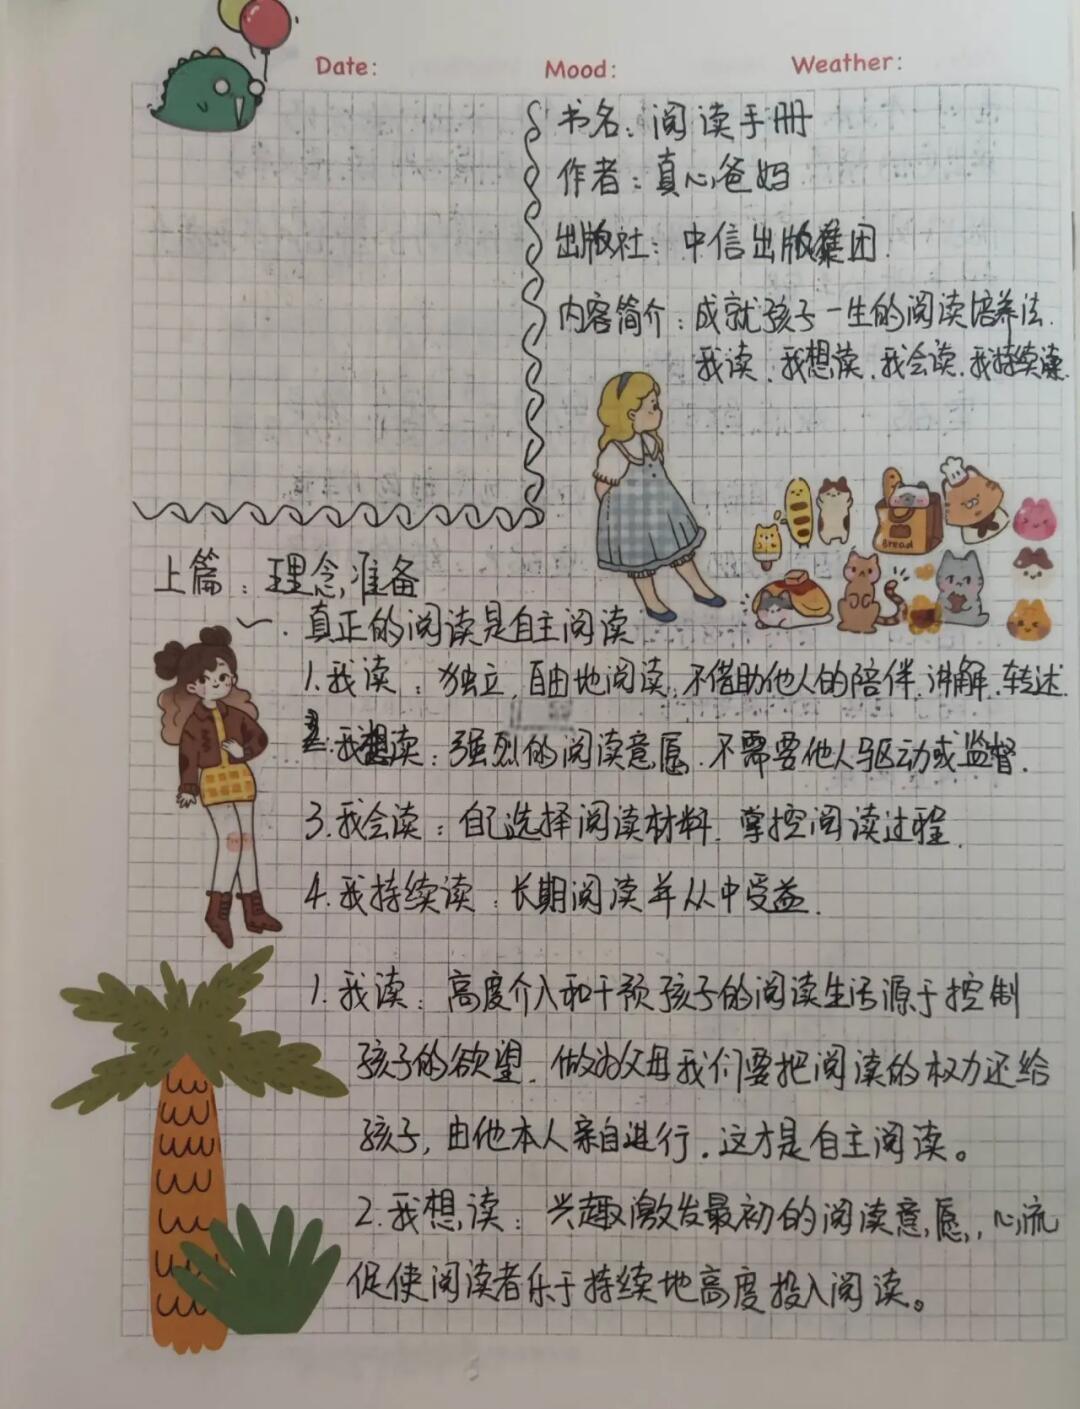 Date:
Mood:
Weather:
书名：阅读手册
作者：真心爸妈
出版社：中信出版集团.
内容简介：成就孩子一生的阅读培养法.
我读.我想读.我会读.我持续读.
Bread
上篇：理念准备
一.真正的阅读是自主阅读
1.我读：独立.自由地阅读.不借助他人的陪伴.讲解.转述.
2.我想读：强烈的阅读意愿.不需要他人驱动或监督.
3.我会读：自己选择阅读材料.掌控阅读过程.
4.我持续读：长期阅读并从中受益.
1.我读：高度介入和干预孩子的阅读生活源于控制
孩子的欲望.做为父母我们要把阅读的权力还给
孩子,由他本人亲自进行.这才是自主阅读。
2.我想读：兴趣激发最初的阅读意愿,.心流
促使阅读者乐于持续地高度投入阅读。